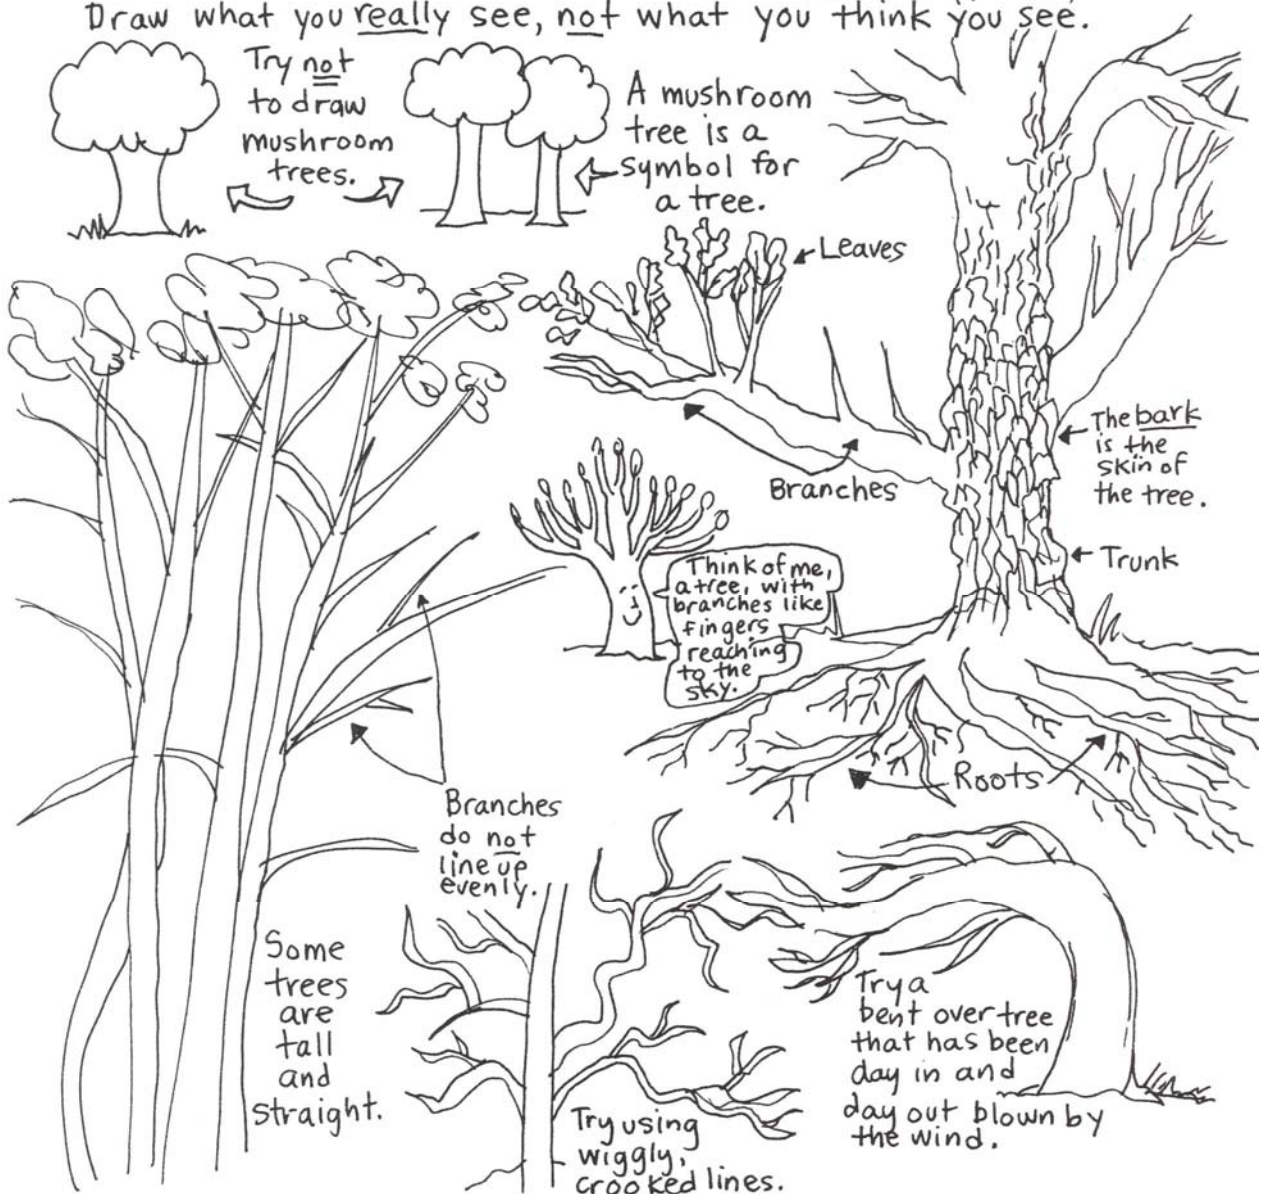 Draw what you really see, not what you think you see.
Try not
to draw
mushroom
trees.
A mushroom
tree is a
symbol for
a tree.
Leaves
The bark
is the
skin of
the tree.
Branches
Trunk
Think of me,
a tree, with
branches like
fingers
reaching
to the
sky.
Roots
Branches
do not
line up
evenly.
Some
trees
are
tall
and
straight.
Try a
bent over tree
that has been
day in and
day out blown by
the wind.
Try using
wiggly,
crooked lines.